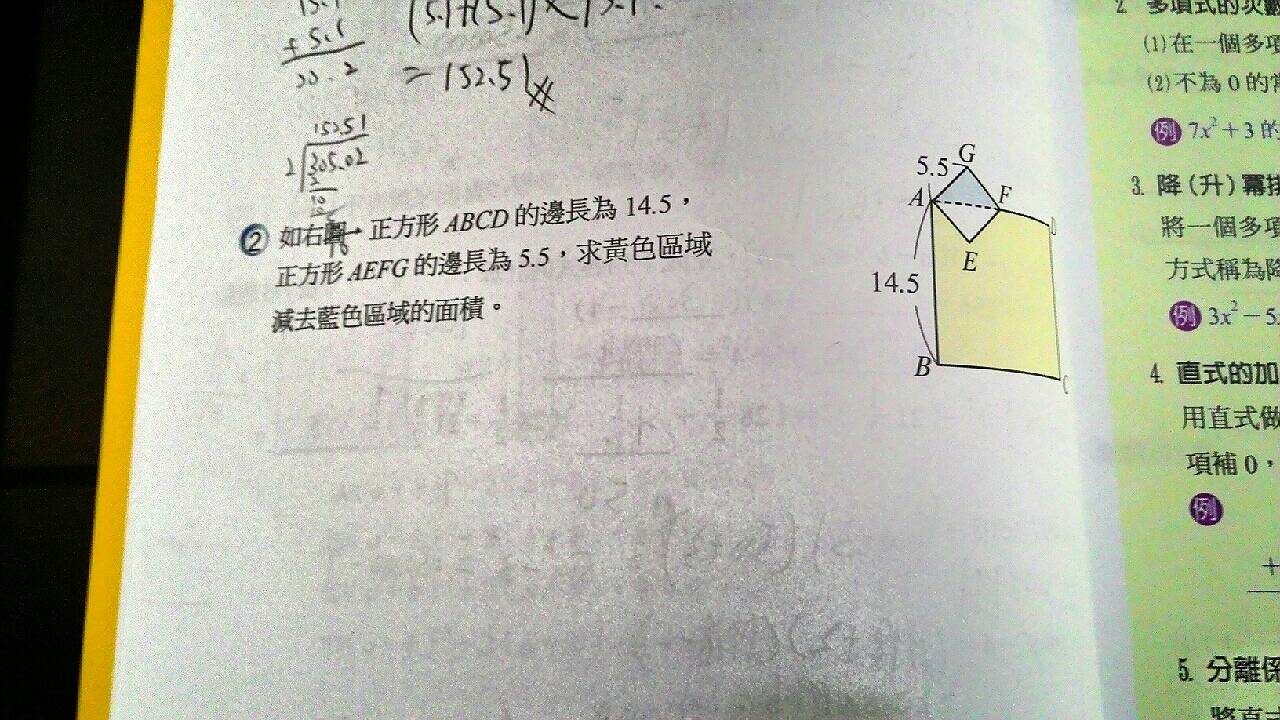 + 5.1
= 152.51
152.51
2
305.02
② 如右圖,正方形 ABCD 的邊長為 14.5,
正方形 AEFG 的邊長為 5.5,求黃色區域
減去藍色區域的面積。
G
5.5
A
F
D
E
14.5
B
C
2. 多項式的次數
(1)在一個多項
(2)不為 0 的常
例 7x²+3 的
3. 降(升)冪排
將一個多項
方式稱為降
例 3x²-5
4. 直式的加
用直式做
項補 0,
例
+
5. 分離係